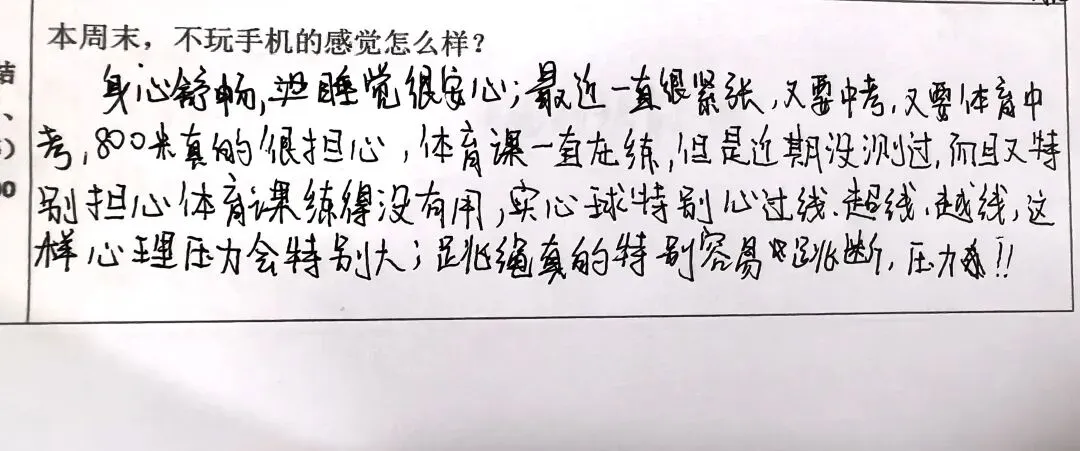 本周末，不玩手机的感觉怎么样？
结
身心舒畅，睡觉很安心；最近一直很紧张，又要中考，又要体育中
、
考，800米真的很担心，体育课一直在练，但是近期没测过，而且又特
）
00
别担心体育课练得没有用，实心球特别心过线、超线、越线，这
样心理压力会特别大；跳绳真的特别容易跳断，压力！！